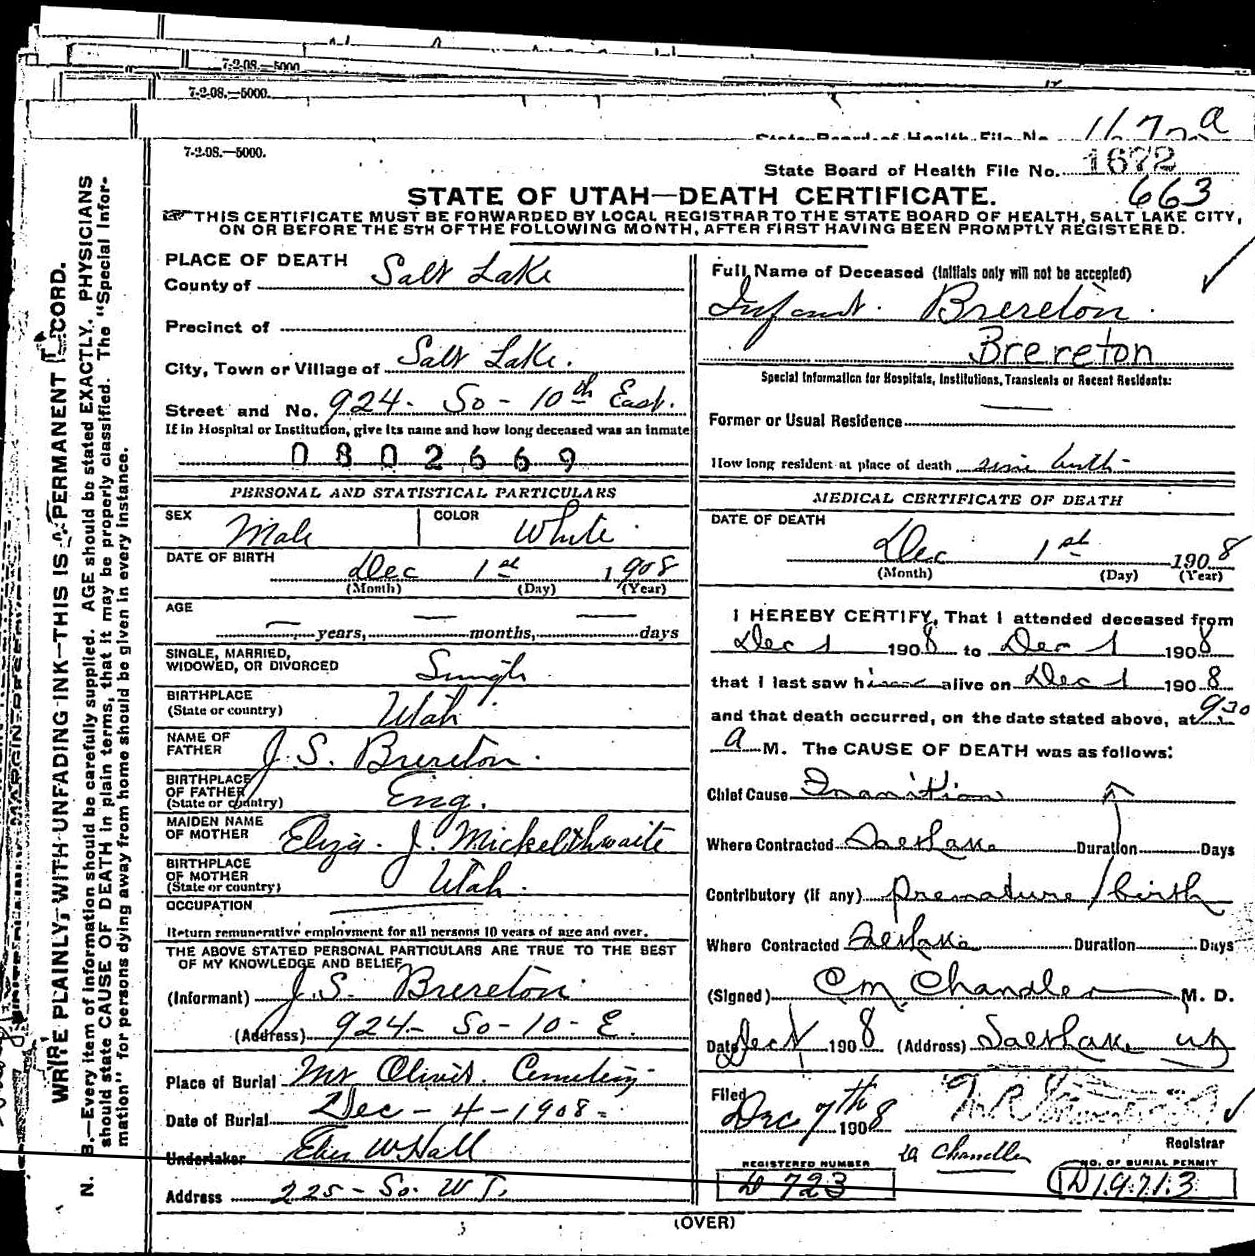 7-2-08.—5000.
7-2-08.—5000.
State Board of Health File No. 1672 a
7-2-08.—5000.
State Board of Health File No. 1672
663
STATE OF UTAH—DEATH CERTIFICATE.
THIS CERTIFICATE MUST BE FORWARDED BY LOCAL REGISTRAR TO THE STATE BOARD OF HEALTH, SALT LAKE CITY,
ON OR BEFORE THE 5TH OF THE FOLLOWING MONTH, AFTER FIRST HAVING BEEN PROMPTLY REGISTERED.
WRITE PLAINLY, WITH UNFADING INK—THIS IS A PERMANENT RECORD.
N. B.—Every item of information should be carefully supplied. AGE should be stated EXACTLY. PHYSICIANS
should state CAUSE OF DEATH in plain terms, that it may be properly classified. The "Special Infor-
mation" for persons dying away from home should be given in every instance.
PLACE OF DEATH
County of Salt Lake
Precinct of
City, Town or Village of Salt Lake.
Street and No. 924- So - 10th East.
If in Hospital or Institution, give its name and how long deceased was an inmate
0802669
PERSONAL AND STATISTICAL PARTICULARS
SEX Male COLOR White
DATE OF BIRTH Dec 1st 1908
(Month) (Day) (Year)
AGE
— years, — months, — days
SINGLE, MARRIED,
WIDOWED, OR DIVORCED Single
BIRTHPLACE
(State or country) Utah
NAME OF
FATHER J. S. Brereton.
BIRTHPLACE
OF FATHER
(State or country) Eng.
MAIDEN NAME
OF MOTHER Eliza. J. Mickelthwaite
BIRTHPLACE
OF MOTHER
(State or country) Utah.
OCCUPATION
Return remunerative employment for all persons 10 years of age and over.
THE ABOVE STATED PERSONAL PARTICULARS ARE TRUE TO THE BEST
OF MY KNOWLEDGE AND BELIEF
(Informant) J. S. Brereton
(Address) 924- So - 10 - E.
Place of Burial Mt Olivet. Cemetery
Date of Burial Dec - 4 - 1908 -
Undertaker Eber W Hall
Address 225 - So. W T.
Full Name of Deceased (Initials only will not be accepted)
Infant. Brereton.
Brereton
Special Information for Hospitals, Institutions, Transients or Recent Residents:
Former or Usual Residence —
How long resident at place of death since birth -
MEDICAL CERTIFICATE OF DEATH
DATE OF DEATH
Dec 1st 1908
(Month) (Day) (Year)
I HEREBY CERTIFY, That I attended deceased from
Dec 1 1908 to Dec 1 1908
that I last saw him alive on Dec 1 1908
and that death occurred, on the date stated above, at 930
a M. The CAUSE OF DEATH was as follows:
Chief Cause Inanition
Where Contracted Salt Lake Duration Days
Contributory (if any) premature birth
Where Contracted Salt Lake Duration Days
(Signed) C M. Chandler M. D.
Date Dec 1 1908 (Address) Salt Lake Ut
Filed
Dec 7th 1908
Registrar
Chandler
REGISTERED NUMBER
D 723
NO. OF BURIAL PERMIT
D19713
(OVER)